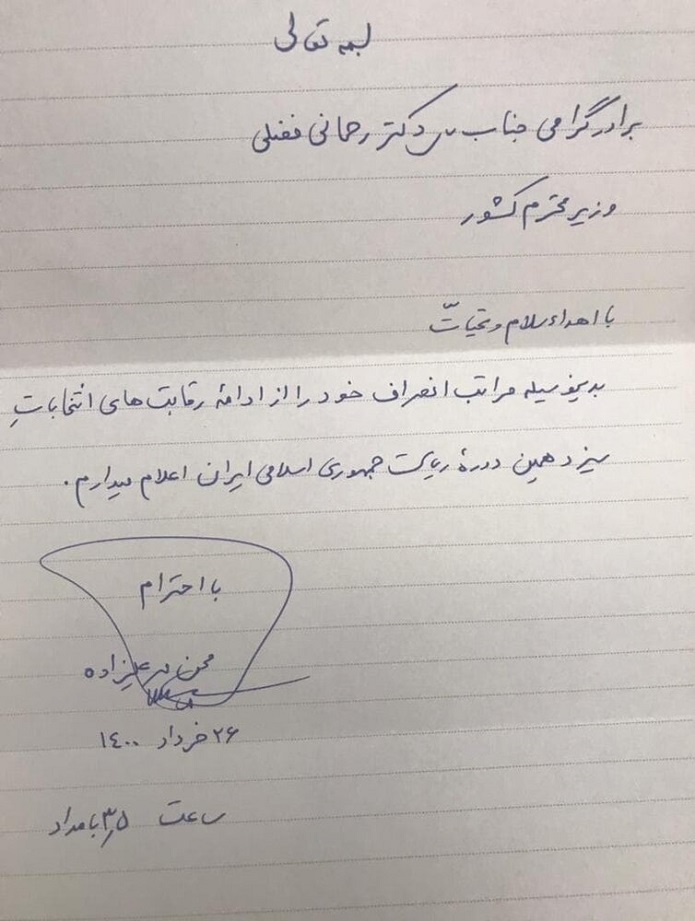 بسمه تعالی
برادر گرامی جناب آقای دکتر رحمانی فضلی
وزیر محترم کشور
با اهداء سلام و تحیّات
بدینوسیله مراتب انصراف خود را از ادامۀ رقابت های انتخاباتِ
سیزدهمین دورۀ ریاست جمهوری اسلامی ایران اعلام میدارم.
با احترام
محسن مهرعلیزاده
۲۶ خرداد ۱۴۰۰
ساعت ۳٫۵ بامداد